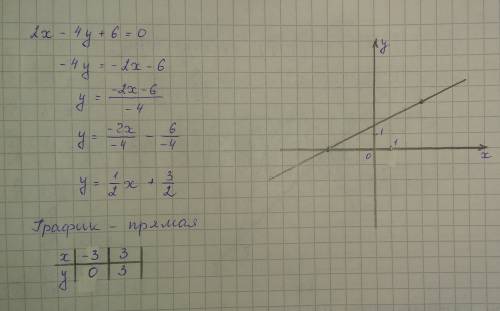 2x - 4y + 6 = 0
-4y = -2x - 6
y = \frac{-2x-6}{-4}
y = \frac{-2x}{-4} - \frac{6}{-4}
y = \frac{1}{2}x + \frac{3}{2}
График - прямая
x | -3 | 3
y | 0 | 3
y
1
0 1 x